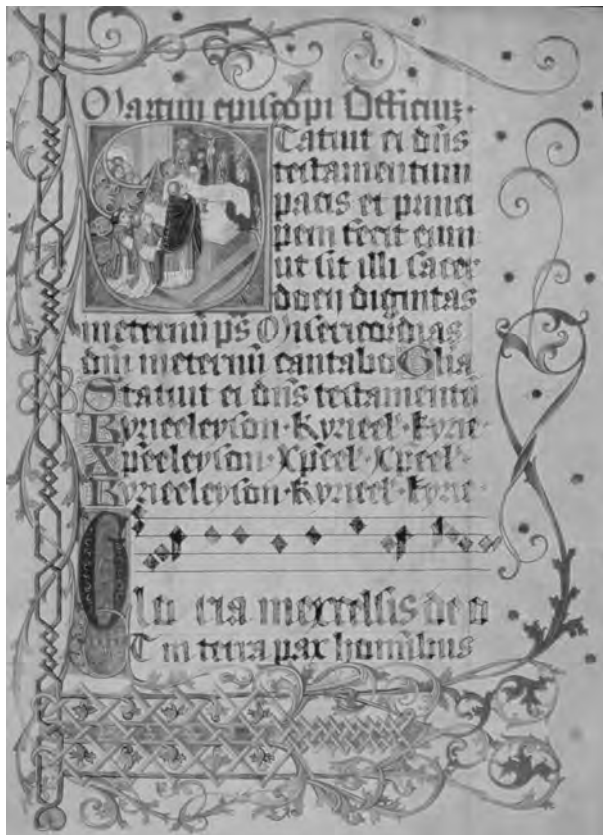 Martini episcopi Officium.
Statuit ei dn̄s
testamentum
pacis et princi
pem fecit eum
ut sit illi sacer
docij dignitas
ineternū ps̄ Misericordias
dnī ineternū cantabo Glīa
Statuit ei dn̄s testamentū
Kyrieeleyson · kyrieel̄ · kyrie ·
Xp̄eeleyson · Xp̄eel̄ · Xp̄eel̄ ·
Kyrieeleyson · kyrieel̄ · kyrie ·
Glo ria inexcelsis de o
Et in terra pax hominibus